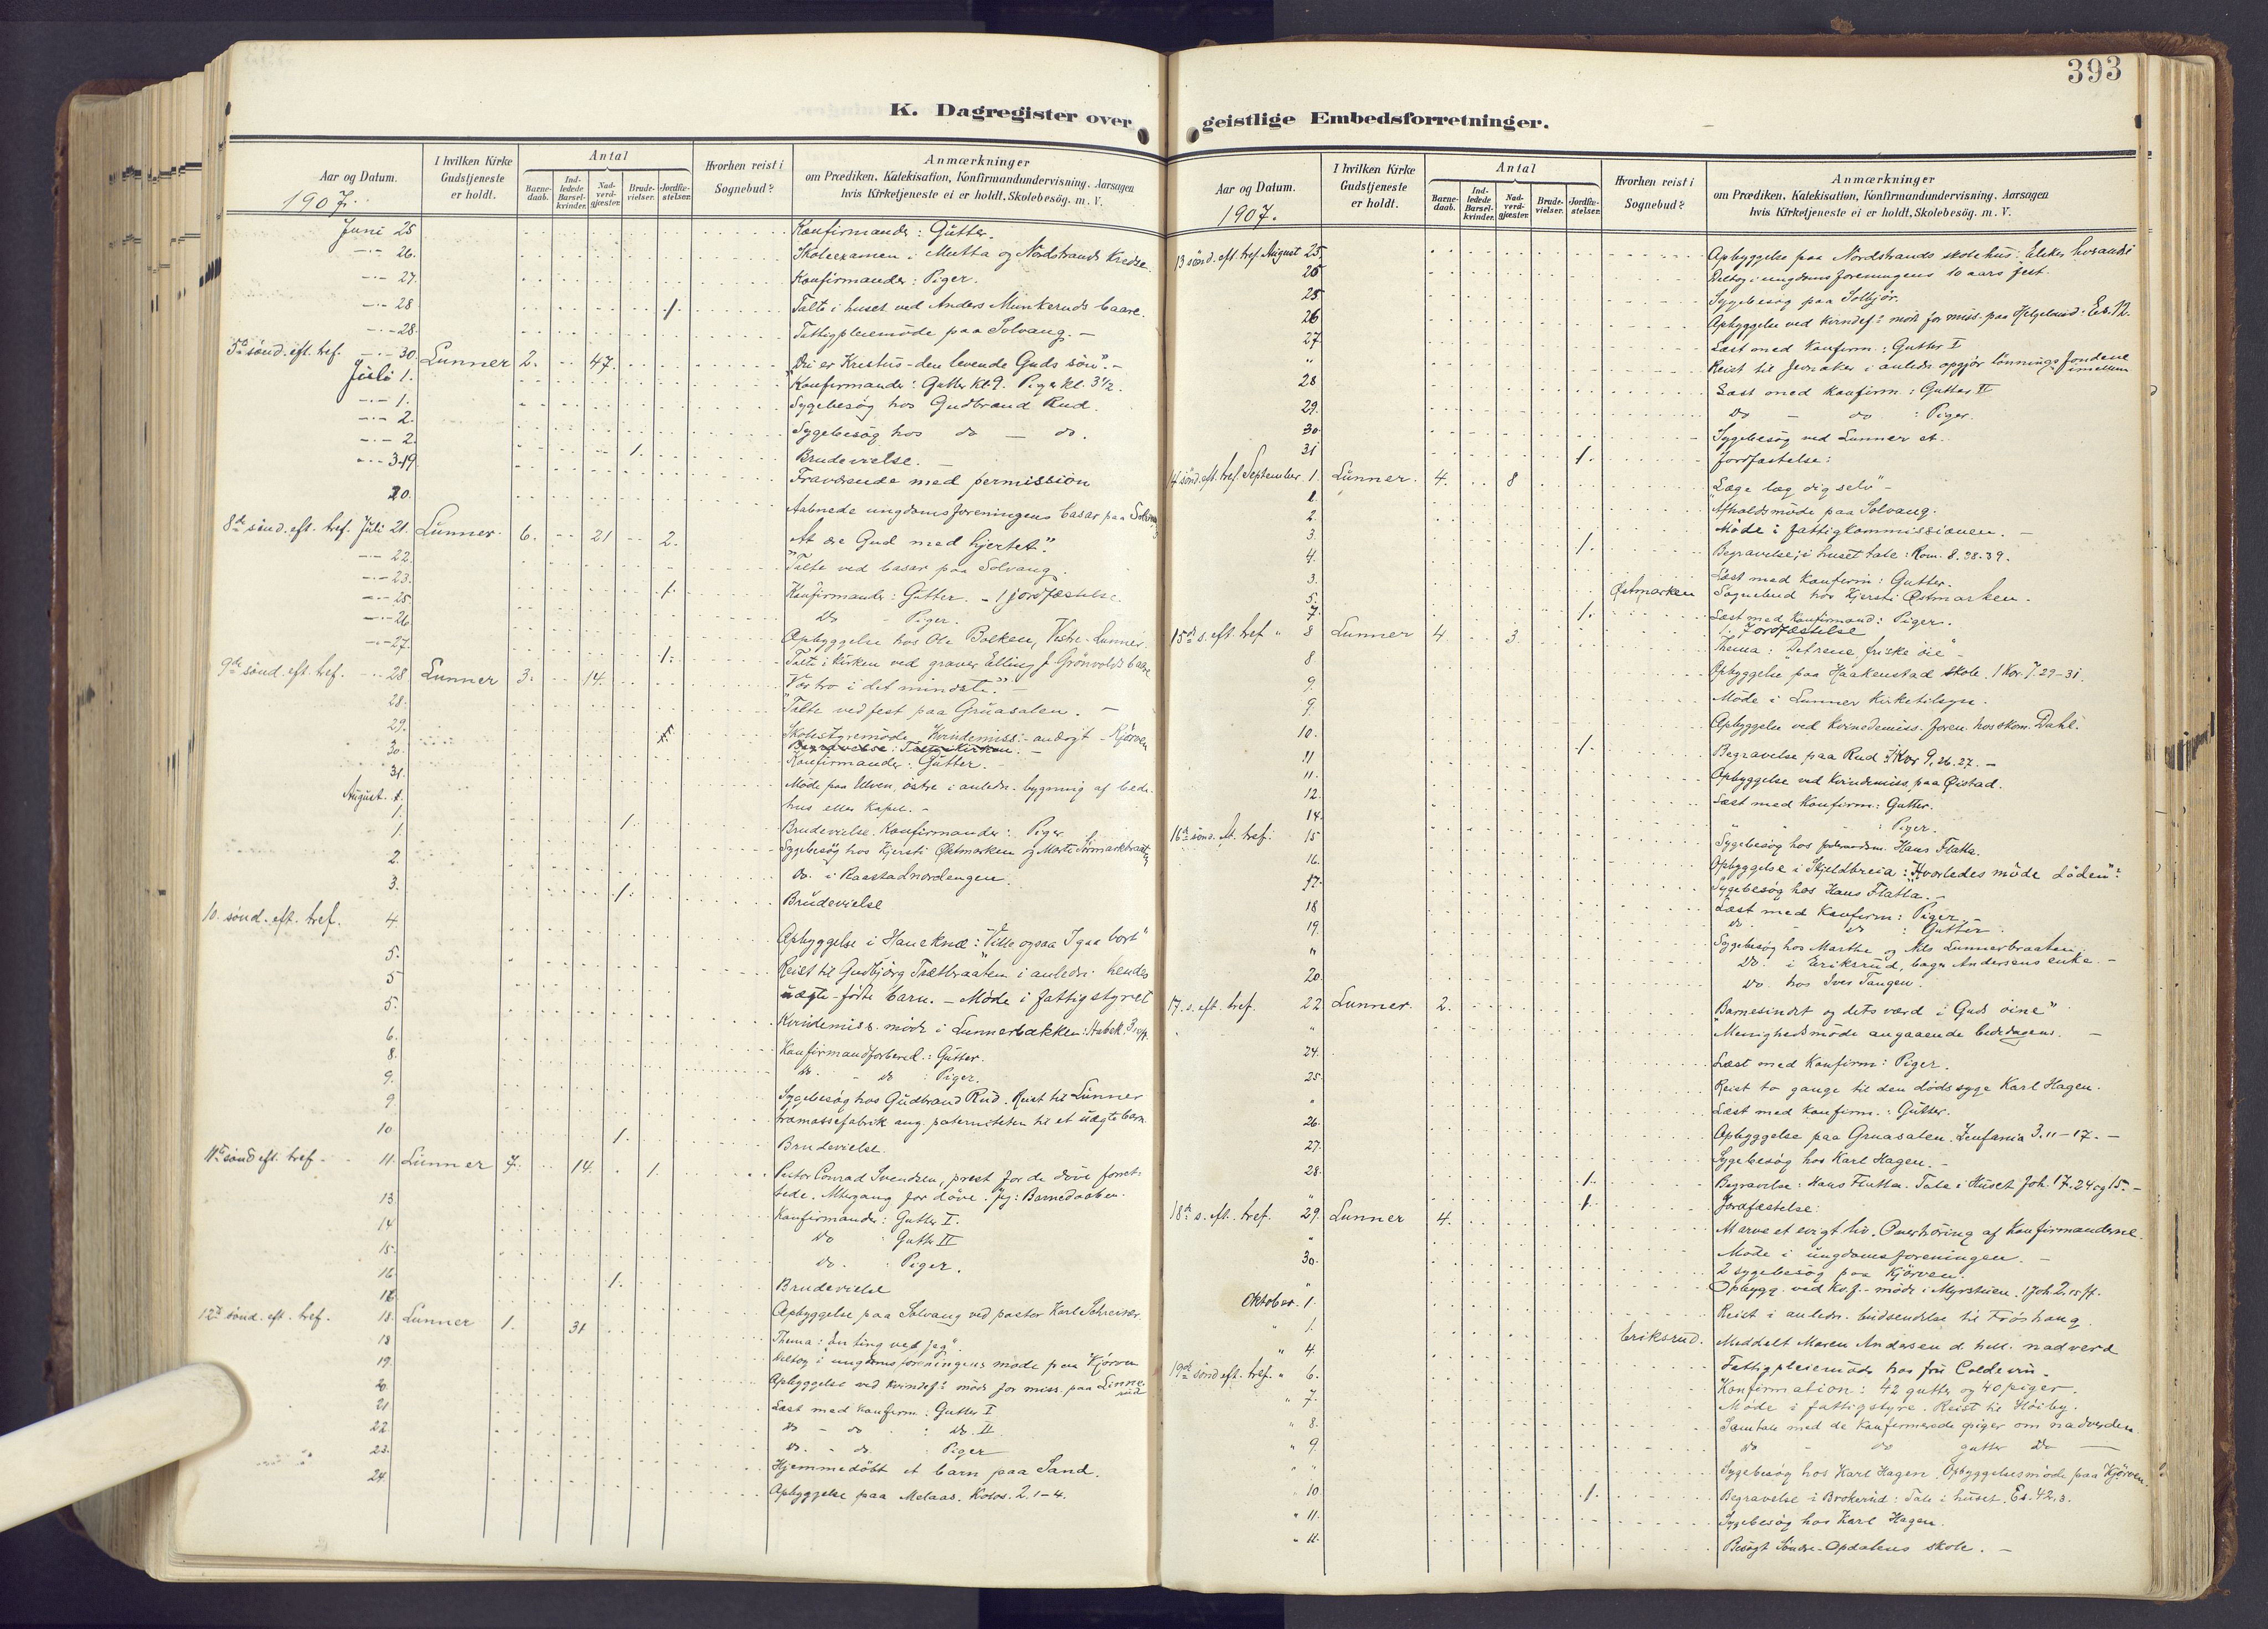 393
K. Dagregister over geistlige Embedsforretninger.
Aar og Datum. I hvilken Kirke Gudstjeneste er holdt. Antal Barnedaab. Indledede Barselkvinder. Nadverdgjæster. Brudevielser. Jordfæstelser. Hvorhen reist i Sognebud? Anmærkninger om Prædiken, Katekisation, Konfirmandundervisning, Aarsagen hvis Kirketjeneste ei er holdt, Skolebesög. m. V.
1907.
Juni 25 Konfirmander: Gutter.
26. Skoleexamen i Mutta og Nordstrands Kredse.
27. Konfirmander: Piger.
28 1. Talte i huset ved Anders Munkeruds baare.
28. Fattigpleiemöde paa Solvang.
5te sönd. eft. tref. 30. Lunner 2. 47. "Du er Kristus - den levende Guds sön".
Juli 1. Konfirmander: Gutter kl. 9. Piger kl. 3½.
1. Sygebesög hos Gudbrand Rud.
2. Sygebesög hos do — do.
2. 1. Brudevielse.
3-19 Fraværende med permission
20. Aabnede ungdomsforeningens basar paa Solvang
8de sönd. eft. tref. Juli 21. Lunner. 6. 21 2. At se Gud med hjertet".
22. Talte ved basar paa Solvang.
23. 1. Konfirmander: Gutter. - 1 jordfæstelse.
25 Do Piger.
26 Opbyggelse hos Ole Bolken, Vestre-Lunner.
27. 1. Talte i Kirken ved graver Elling J. Grönvolds baare
9de sönd. eft. tref. 28 Lunner 3. 14. "Vær tro i det mindste."
28. Talte ved fest paa Gruasalen.
29. Skolestyremöde Kvindemiss. - andagt - Kjörven
30. Konfirmander: Gutter.
31. Möde paa Ulven, östre i anledn. bygning af bede-
August 1. hus eller Kapel.
1. 1. Brudevielse. Konfirmander: Piger
1. Sygebesög hos Kjersti Östmarken og Marte
2. Do. i Raastadnordengen.
3. 1. Brudevielse
10. sönd. eft. tref. 4. Opbyggelse i Haneknæ: "Ville ogsaa I gaa bort"
5. Reist til Gudbjörg i anledn. hendes
5 uægte-födte barn. - Möde i fattigstyret
5. Kvindemiss. möde i Lunnerbakken: Habak. 3
6. Konfirmandforbered.: Gutter.
8. do. - do : Piger.
9. Sygebesög hos Gudbrand Rud. Reist til Lunner
9. træmassefabrik ang. paterniteten til et uægte barn.
10 1. Brudevielse.
11te sönd eft. tref. 11. Lunner 7. 14. 1. Pastor Conrad Svendsen, prest for de döve forret-
tede. Altergang for döve. Jeg: Barnedaaben.
13 Konfirmander: Gutter I.
14 Do : Gutter II
15. Do. : Piger.
16 1. Brudevielse
16. Opbyggelse paa Solvang ved pastor Karl Schreiner.
12te sönd. eft. tref. 18. Lunner 1. 31 Thema: "En ting ved jeg".
18 Deltog i ungdomsforeningens möde paa Kjörven
19. Opbyggelse ved Kvindef.s möde for miss. paa
20. Læst med Konfirm. Gutter I
21 Do - do : Do. II
22. Do. - do. : Piger
23. Hjemmedöbt et barn paa Sand.
24. Opbyggelse paa Melaas. Kolos. 2. 1-4.
Aar og Datum. I hvilken Kirke Gudstjeneste er holdt. Antal Barnedaab. Indledede Barselkvinder. Nadverdgjæster. Brudevielser. Jordfæstelser. Hvorhen reist i Sognebud? Anmærkninger om Prædiken, Katekisation, Konfirmandundervisning, Aarsagen hvis Kirketjeneste ei er holdt, Skolebesög. m. V.
1907.
13 sönd. eft. tref. August 25. Opbyggelse paa Nordstrands skolehus: Elsker hverandre
25 Deltog i ungdomsforeningens 10 aars fest.
25 Sygebesög paa Solbjör.
26 Opbyggelse ved Kvindef.s möde for miss. paa Helgeland. Es. 12.
27 Læst med Konfirm.: Gutter I
" Reist til Jevnaker i anledn. opgjör lönningsfondene imellem
28 Læst med Konfirm.: Gutter II
29. Do — do : Piger.
30 Sygebesög ved Lunner st.
31 1. Jordfæstelse:
14. sönd. eft. tref September 1. Lunner. 4. 8 "Læge læg dig selv" -
1. Afholdsmöde paa Solvang.
2. Möde i fattigkommissionen.
3. 1. Begravelse; i huset tale: Rom. 8. 38-39.
4. Læst med Konfirm: Gutter.
3. Östmarken Sognebud hos Kjersti Östmarken.
5. Læst med Konfirmand: Piger.
7. 1. 1. Jordfæstelse
15de s. eft. tref " 8 Lunner 4. 3. Thema: "Det rene, friske öie" -
8 Opbyggelse paa Haakenstad skole. 1 Kor. 7. 29-31.
9. Möde i Lunner Kirketilsyn.
9. Opbyggelse ved Kvindemiss. foren. hos skom. Dahl.
10. 1. Begravelse paa Rud 1 Kor 9. 26. 27. -
11 Opbyggelse ved Kvindemiss. paa Öistad.
11. Læst med Konfirm: Gutter.
12. " " : Piger.
14. Sygebesög hos Hans Flatla.
16de sönd. eft. tref. 15 Opbyggelse i Skjeldbreia: "Hvorledes möde döden":
16. Sygebesög hos Hans Flatla. -
17. Læst med Konfirm: Piger. -
18 do - do : Gutter.
19. Sygebesög hos Marthe og Nils Lunnerbraaten.
" Do. i Eriksrud, bager Andersens enke. -
20. Do. hos Iver Tangen.
17. s. eft. tref. 22 Lunner. 2. Barnesindet og dets værd i Guds öine"
" " Menighedsmöde angaaende bededagens. —
24. Læst med Konfirm: Piger.
25 Reist to gange til den dödssyge Karl Hagen.
" Læst med Konfirm.: Gutter.
26. Opbyggelse paa Gruasalen. Zenfania 3. 11-17. -
27. Sygebesög hos Karl Hagen. -
28. 1. Begravelse: Hans Flatla. Tale i Huset Joh. 17. 24 og 15. -
" 1. Jordfæstelse:
18de s. eft. tref. 29. Lunner 4. At arve et evigt liv. Overhöring af Konfirmanderne.
" Möde i ungdomsforeningen. -
30. 2 sygebesög paa Kjörven.
" Opbygg. ved Kv.f. - möde i Myrstuen. 1 Joh. 2. 15 ff.
Oktober. 1. Reist i anledn. budsendelse til Fröshaug.
" 1. Eriksrud. Meddelt Maren Andersen d. hell. nadverd
" 4. Fattigpleiemöde hos fru Coldevin.
19de sönd eft. tref. " 6. Konfirmation: 42 gutter og 40 piger.
" 7. Möde i fattigstyre. Reist til Höiby.
" 8. Samtale med de Konfirmerede piger om nadverden.
" 9. do - do gutter Do —
" " Sygebesög hos Karl Hagen. Opbyggelsesmöde paa Kjörven.
10 1. Begravelse i Brokerud: Tale i huset. Es. 42. 3.
" 11. Sygebesög hos Karl Hagen.
" 11. Besögt Söndre-Opdalens skole. -